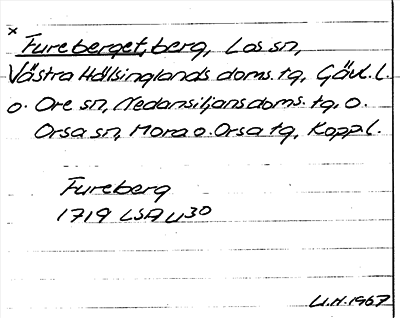 x
Fureberget, berg, Los sn,
Västra Hälsinglands doms. tg, Gävl. l.
o. Ore sn, Nedansiljans doms. tg, o.
Orsa sn, Mora o. Orsa tg, Kopp. l.
Fureberg
1719 LSA U30
U.H. 1967